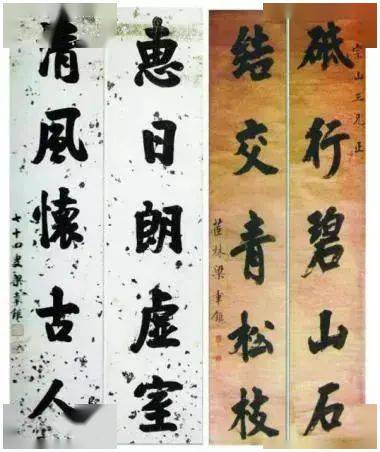 宗山三兄正
砥行碧山石
結交青松枝
茝林梁章鉅
惠日朗虚室
清風懷古人
七十四叟梁章鉅